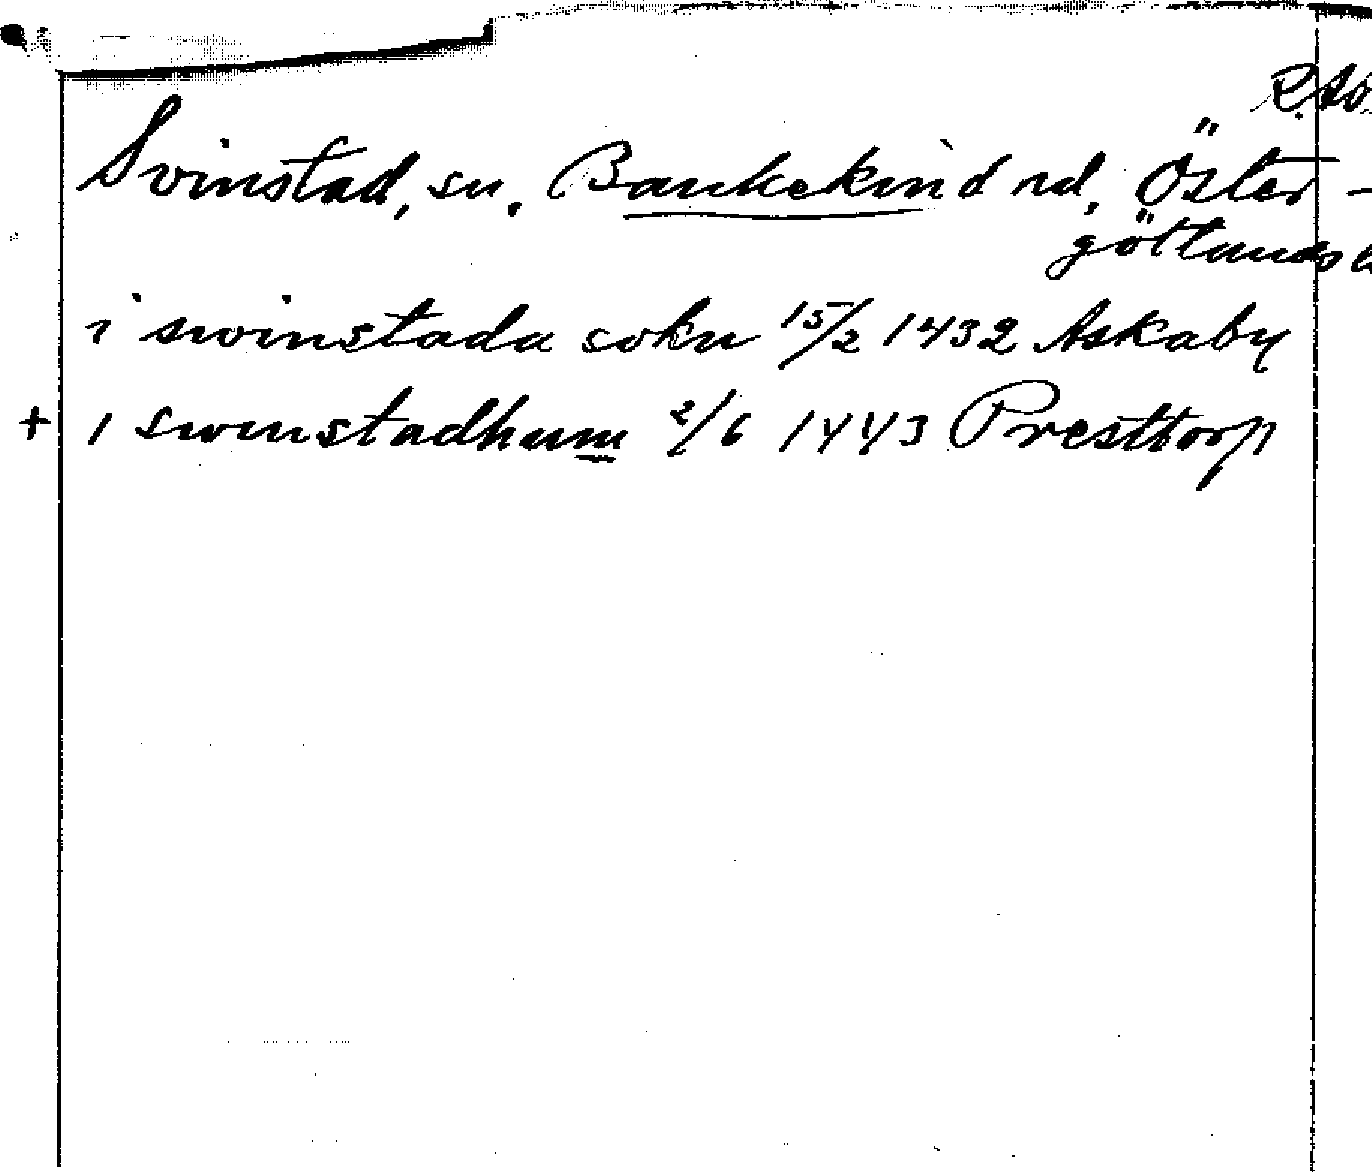 R.Ao.
Svinstad, sn, Bankekind hd, Öster-
götlands l
i swinstada sokn 15/2 1432 Askaby
+ i swinstadhum 2/6 1443 Presttorp